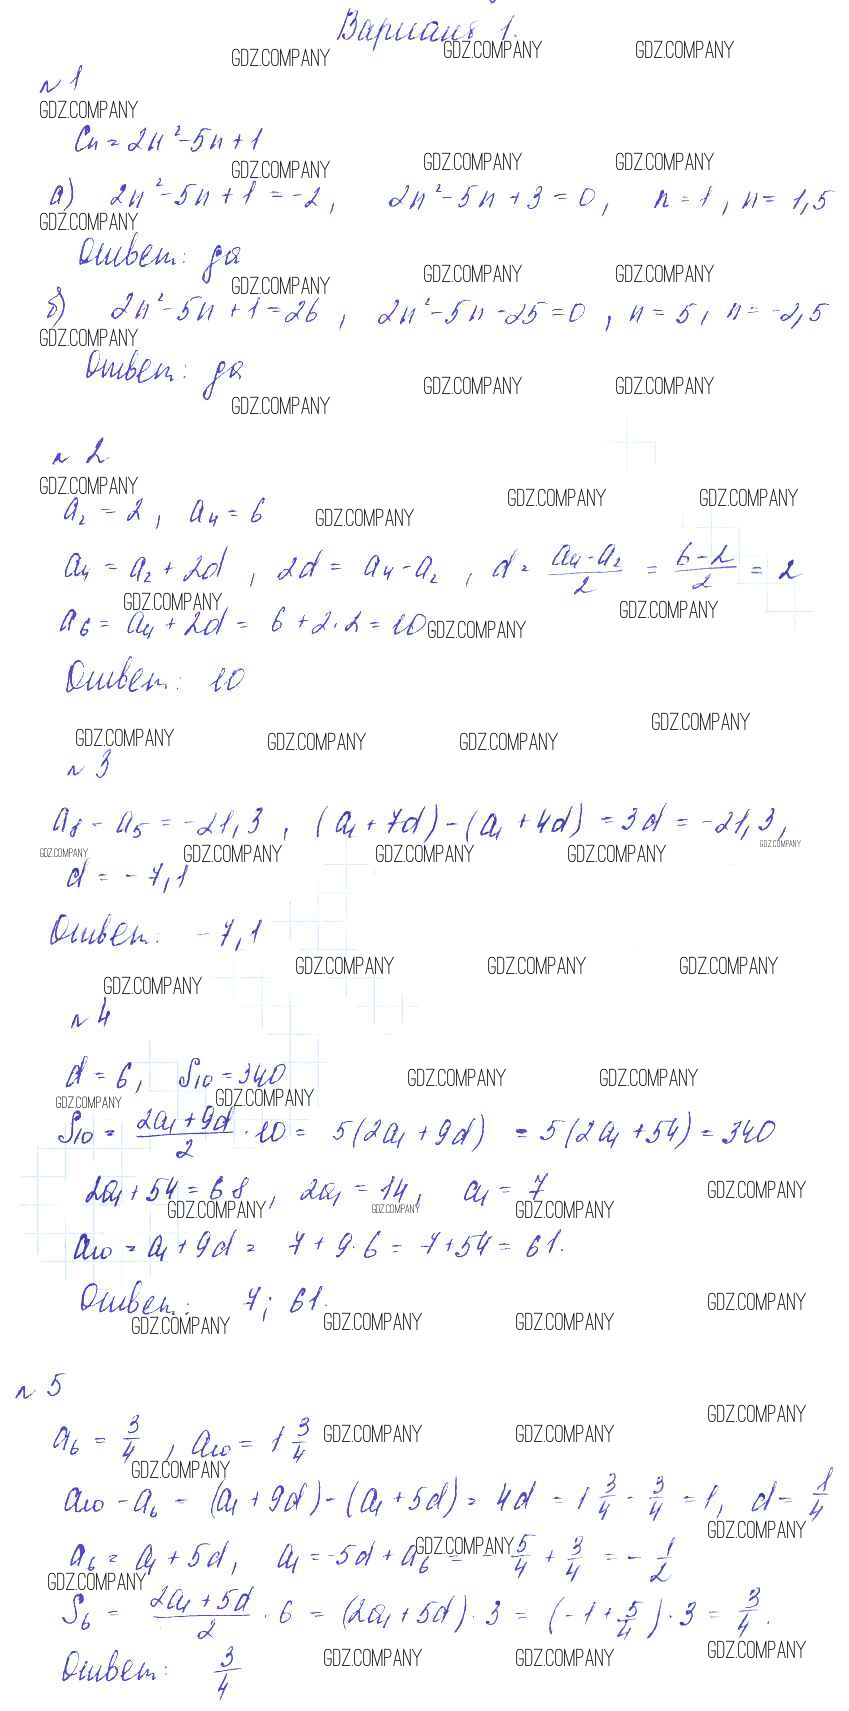 Вариант 1.
GDZ.COMPANY GDZ.COMPANY GDZ.COMPANY
№ 1
GDZ.COMPANY
Cn = 2n² - 5n + 1
GDZ.COMPANY GDZ.COMPANY GDZ.COMPANY
а) 2n² - 5n + 1 = -2, 2n² - 5n + 3 = 0, n = 1, n = 1,5
GDZ.COMPANY
Ответ: да
GDZ.COMPANY GDZ.COMPANY GDZ.COMPANY
б) 2n² - 5n + 1 = 26, 2n² - 5n - 25 = 0, n = 5, n = -2,5
GDZ.COMPANY
Ответ: да
GDZ.COMPANY GDZ.COMPANY GDZ.COMPANY
№ 2
GDZ.COMPANY GDZ.COMPANY GDZ.COMPANY
a₂ = 2, a₄ = 6 GDZ.COMPANY
a₄ = a₂ + 2d, 2d = a₄ - a₂, d = (a₄ - a₂)/2 = (6 - 2)/2 = 2
GDZ.COMPANY GDZ.COMPANY
a₆ = a₄ + 2d = 6 + 2·2 = 10 GDZ.COMPANY
Ответ: 10
GDZ.COMPANY GDZ.COMPANY GDZ.COMPANY GDZ.COMPANY
№ 3
a₈ - a₅ = -21,3, (a₁ + 7d) - (a₁ + 4d) = 3d = -21,3,
GDZ.COMPANY GDZ.COMPANY GDZ.COMPANY GDZ.COMPANY GDZ.COMPANY
d = -7,1
Ответ: -7,1
GDZ.COMPANY GDZ.COMPANY GDZ.COMPANY GDZ.COMPANY
№ 4
d = 6, S₁₀ = 340 GDZ.COMPANY GDZ.COMPANY
GDZ.COMPANY GDZ.COMPANY
S₁₀ = (2a₁ + 9d)/2 · 10 = 5(2a₁ + 9d) = 5(2a₁ + 54) = 340
2a₁ + 54 = 68, 2a₁ = 14, a₁ = 7 GDZ.COMPANY
GDZ.COMPANY GDZ.COMPANY GDZ.COMPANY
a₁₀ = a₁ + 9d = 7 + 9·6 = 7 + 54 = 61.
Ответ: 7; 61. GDZ.COMPANY
GDZ.COMPANY GDZ.COMPANY GDZ.COMPANY
№ 5
GDZ.COMPANY
a₆ = 3/4, a₁₀ = 1 3/4 GDZ.COMPANY GDZ.COMPANY
GDZ.COMPANY
a₁₀ - a₆ = (a₁ + 9d) - (a₁ + 5d) = 4d = 1 3/4 - 3/4 = 1, d = 1/4
GDZ.COMPANY GDZ.COMPANY
a₆ = a₁ + 5d, a₁ = -5d + a₆ = -5/4 + 3/4 = -1/2
GDZ.COMPANY
S₆ = (2a₁ + 5d)/2 · 6 = (2a₁ + 5d) · 3 = (-1 + 5/4) · 3 = 3/4.
Ответ: 3/4 GDZ.COMPANY GDZ.COMPANY GDZ.COMPANY